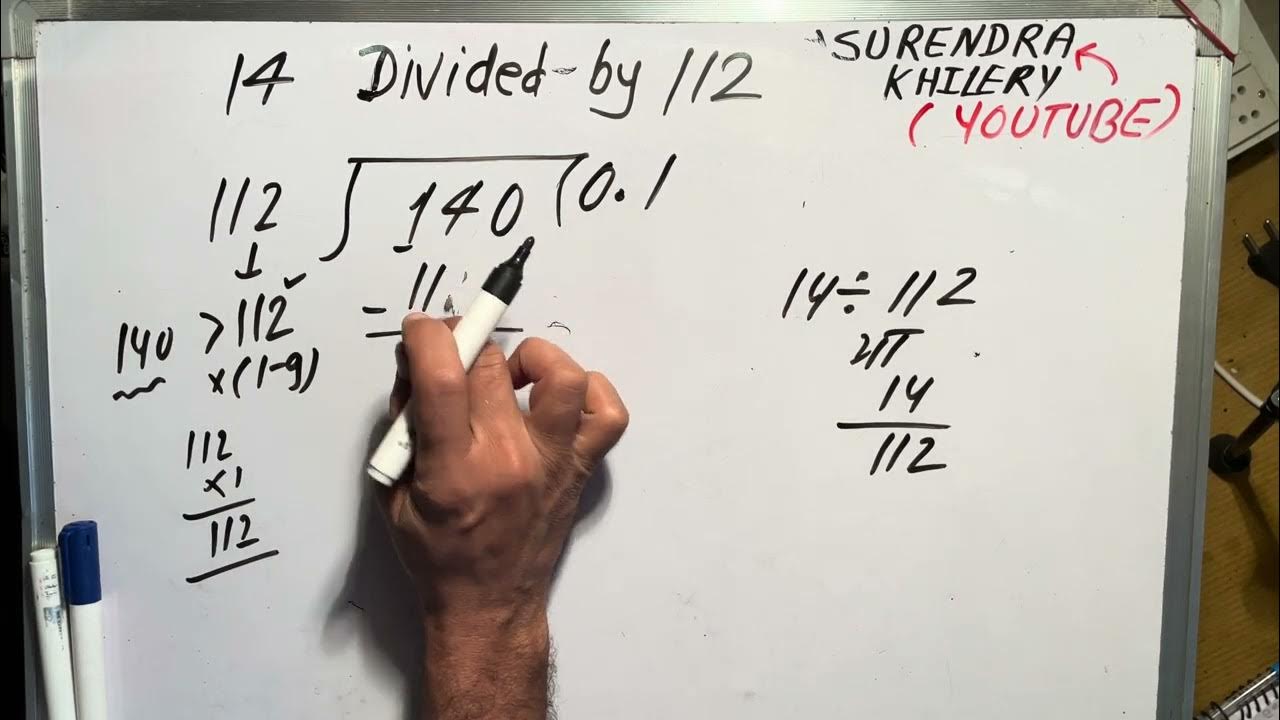 14 Divided by 112
SURENDRA
KHILERY
(YOUTUBE)
112 140 (0.1
- 11
140 > 112
×(1-9)
112
×1
112
14÷112
14
112